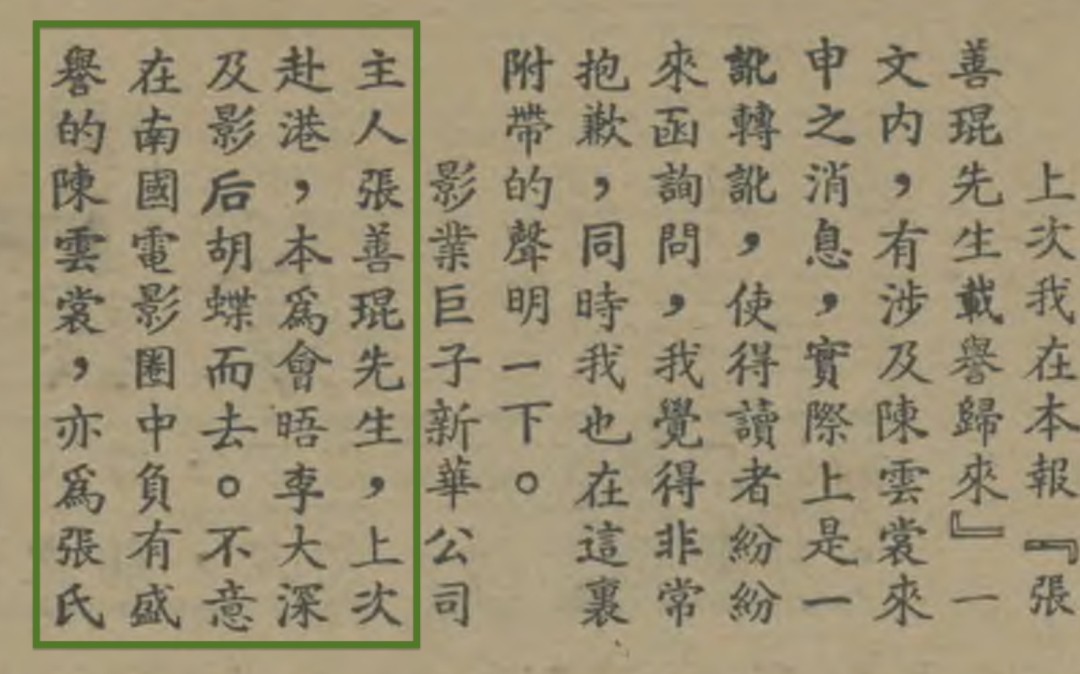 上次我在本報『張
善琨先生載譽歸來』一
文内，有涉及陳雲裳來
申之消息，實際上是一
訛轉訛，使得讀者紛紛
來函詢問，我覺得非常
抱歉，同時我也在這裏
附帶的聲明一下。
影業巨子新華公司
主人張善琨先生，上次
赴港，本爲會晤李大深
及影后胡蝶而去。不意
在南國電影圈中負有盛
譽的陳雲裳，亦爲張氏